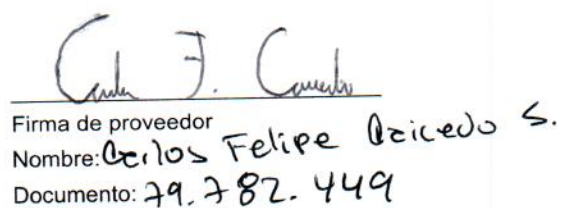 Firma de proveedor
Nombre: Carlos Felipe Caicedo S.
Documento: 79.782.449